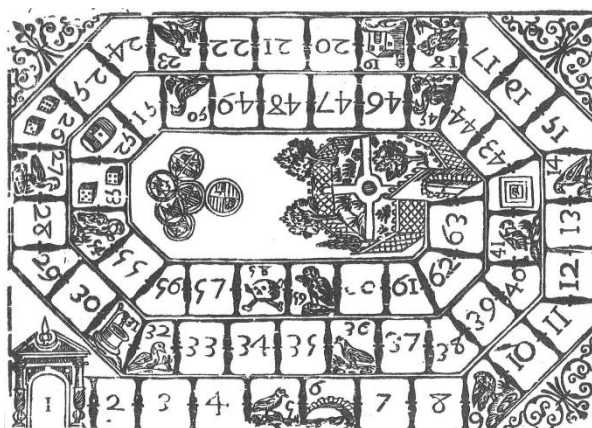 1
2
3
4
5
6
7
8
9
10
11
12
13
14
15
16
17
18
19
20
21
22
23
24
25
26
27
28
29
30
32
33
34
35
36
37
38
39
40
41
43
44
45
46
47
48
49
50
51
52
53
55
56
57
58
59
60
61
62
63